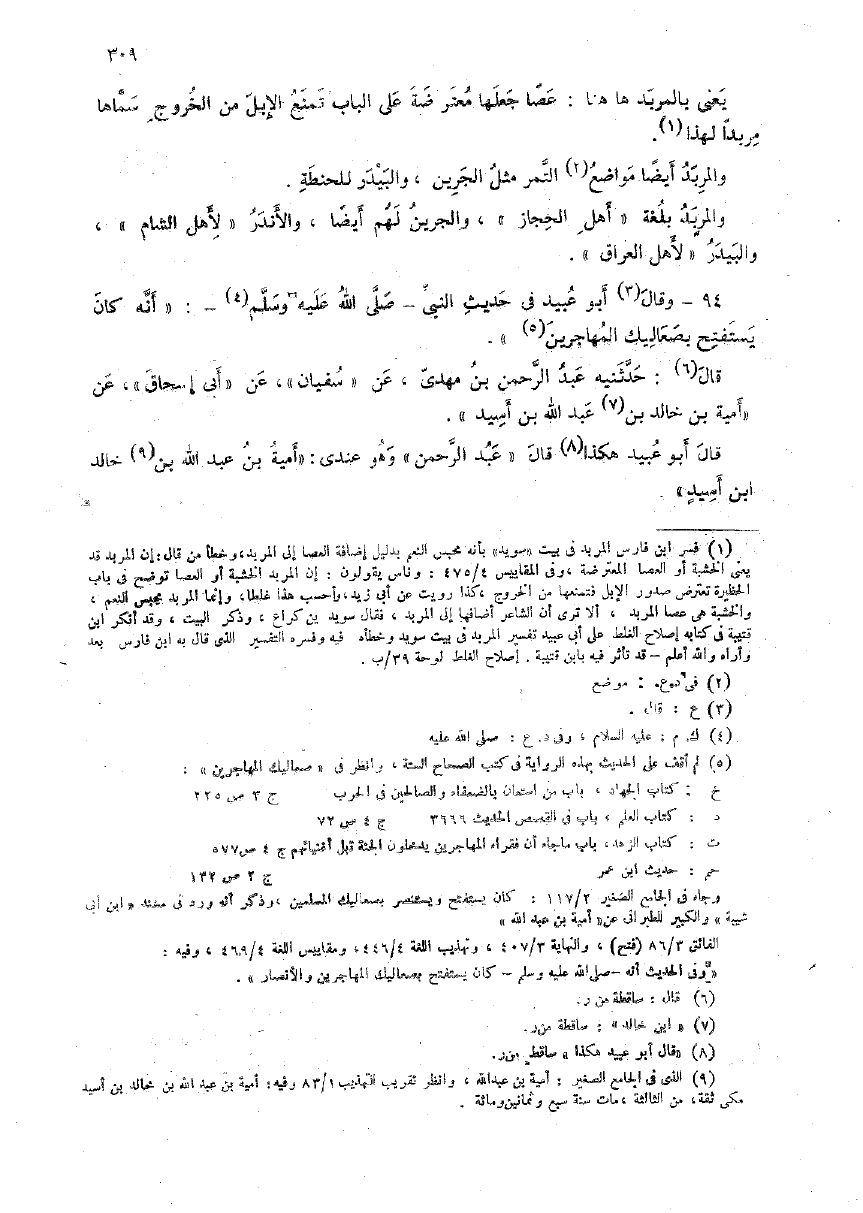 ٣٠٩
يَعْنى بالمربَد ها هنا : عَصًا جَعلَها مُعتَرضَةً عَلى الباب تَمنَعُ الإبلَ من الخُروجِ سَمَّاها
مِربداً لهذا(١).
والمربَدُ أيضًا مَواضعُ(٢) التَّمر مثلُ الجَرين ، والبَيْدَر للحنطَةِ .
والمربَدُ بلُغة « أهلِ الحِجاز » ، والجرينُ لَهُم أيضًا ، والأَندَرُ « لِأَهل الشام » ،
والبَيدَرُ « لأَهل العراق » .
٩٤ – وقالَ(٣) أبو عُبيد فى حَديثِ النبىِّ – صَلَّى اللهُ عَلَيه وَسَلَّم(٤) – : « أنَّه كانَ
يَستَفتِح بصَعَالِيك المُهاجرينَ(٥) » .
قالَ(٦) : حَدَّثَنيه عَبدُ الرَّحمن بنُ مهدىّ ، عَن « سُفيان » ، عَن « أَبى إسحاقَ » ، عَن
«أُمية بن خالد بن(٧) عَبد الله بن أَسِيد » .
قالَ أبو عُبيد هكذا(٨) قالَ « عَبْد الرَّحمن » وَهُو عندى : «أُميةُ بنُ عبد الله بن(٩) خالد
ابن أَسِيدٍ» .
(١) فسر ابن فارس المربد فى بيت «سويد» بأنه محبس النعم بدليل إضافة العصا إلى المربد، وخطأ من قال: إن المربد قد
يعنى الخشبة أو العصا المعترضة ، وفى المقاييس ٤٧٥/٤ : وناس يقولون : إن المربد الخشبة أو العصا توضح فى باب
الحظيرة تعترض صدور الإبل فتمنعها من الخروج ، كذا رويت عن أبى زيد، وأحسب هذا غلطا، وإنما المربد محبس النعم ،
والخشبة هى عصا المربد ، ألا ترى أن الشاعر أضافها إلى المربد ، فقال سويد بن كراع ، وذكر البيت ، وقد أنكر ابن
قتيبة فى كتابه إصلاح الغلط على أبى عبيد تفسير المربد فى بيت سويد وخطأه فيه وفسره التفسير الذى قال به ابن فارس بعد
وأراه والله أعلم – قد تأثر فيه بابن قتيبة . إصلاح الغلط لوحة ٣٩/ب .
(٢) فى د، ع. : موضع
(٣) ع : قال .
(٤) ك. م : عليه السلام ، وفى د. ع : صلى الله عليه
(٥) لم أقف على الحديث بهذه الرواية فى كتب الصحاح الستة ، وانظر فى « صعاليك المهاجرين » :
خ : كتاب الجهاد ، باب من استعان بالضعفاء والصالحين فى الحرب ج ٣ ص ٢٢٥
د : كتاب العلم ، باب فى القصص الحديث ٣٦٦٦ ج ٤ ص ٧٢
ت : كتاب الزهد، باب ماجاء أن فقراء المهاجرين يدخلون الجنة قبل أغنيائهم ج ٤ ص٥٧٧
حم : حديث ابن عمر ج ٢ ص ١٣٢
وجاء فى الجامع الصغير ١١٧/٢ : كان يستفتح ويستنصر بصعاليك المسلمين ، وذكر أنه ورد فى مسند « ابن أبى
شيبة » والكبير للطبرانى عن« أمية بن عبد الله »
الفائق ٨٦/٣ (فتح) ، والنهاية ٤٠٧/٣ ، وتهذيب اللغة ٤٤٦/٤، ومقاييس اللغة ٤٦٩/٤ ، وفيه :
«وفى الحديث أنه –صلى الله عليه وسلم – كان يستفتح بصعاليك المهاجرين والأنصار » .
(٦) قال : ساقطة من ر.
(٧) « ابن خالد» : ساقطة من ر.
(٨) «قال أبو عبيد هكذا » ساقط من ر.
(٩) الذى فى الجامع الصغير : أمية بن عبدالله ، وانظر تقريب التهذيب ٨٣/١ وفيه: أمية بن عبد الله بن خالد بن أسيد
مكى ثقة، من الثالثة ، مات سنة سبع وثمانين ومائة .